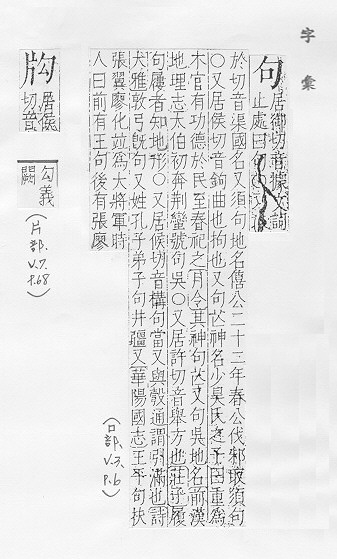 字彙
句 居御切音據文詞
止處曰句
於切音渠國名又須句地名僖公二十三年春公伐邾取須句
〇又居侯切音鉤曲也拘也又句芒神名少昊氏之子曰重為
木官有功德於民至春祀之月令其神句芒又句吳地名前漢
地理志太伯初奔荊蠻號句吳〇又居許切音舉方也莊子履
句屨者知地形〇又居候切音構句當又與彀通謂引滿也詩
大雅敦弓旣句又姓孔子弟子句井疆又華陽國志王平句扶
張翼廖化竝為大將軍時
人曰前有王句後有張廖
(口部. v.3. p.6)
居侯
切音
勾義
闕
(片部. v.7. p.68)